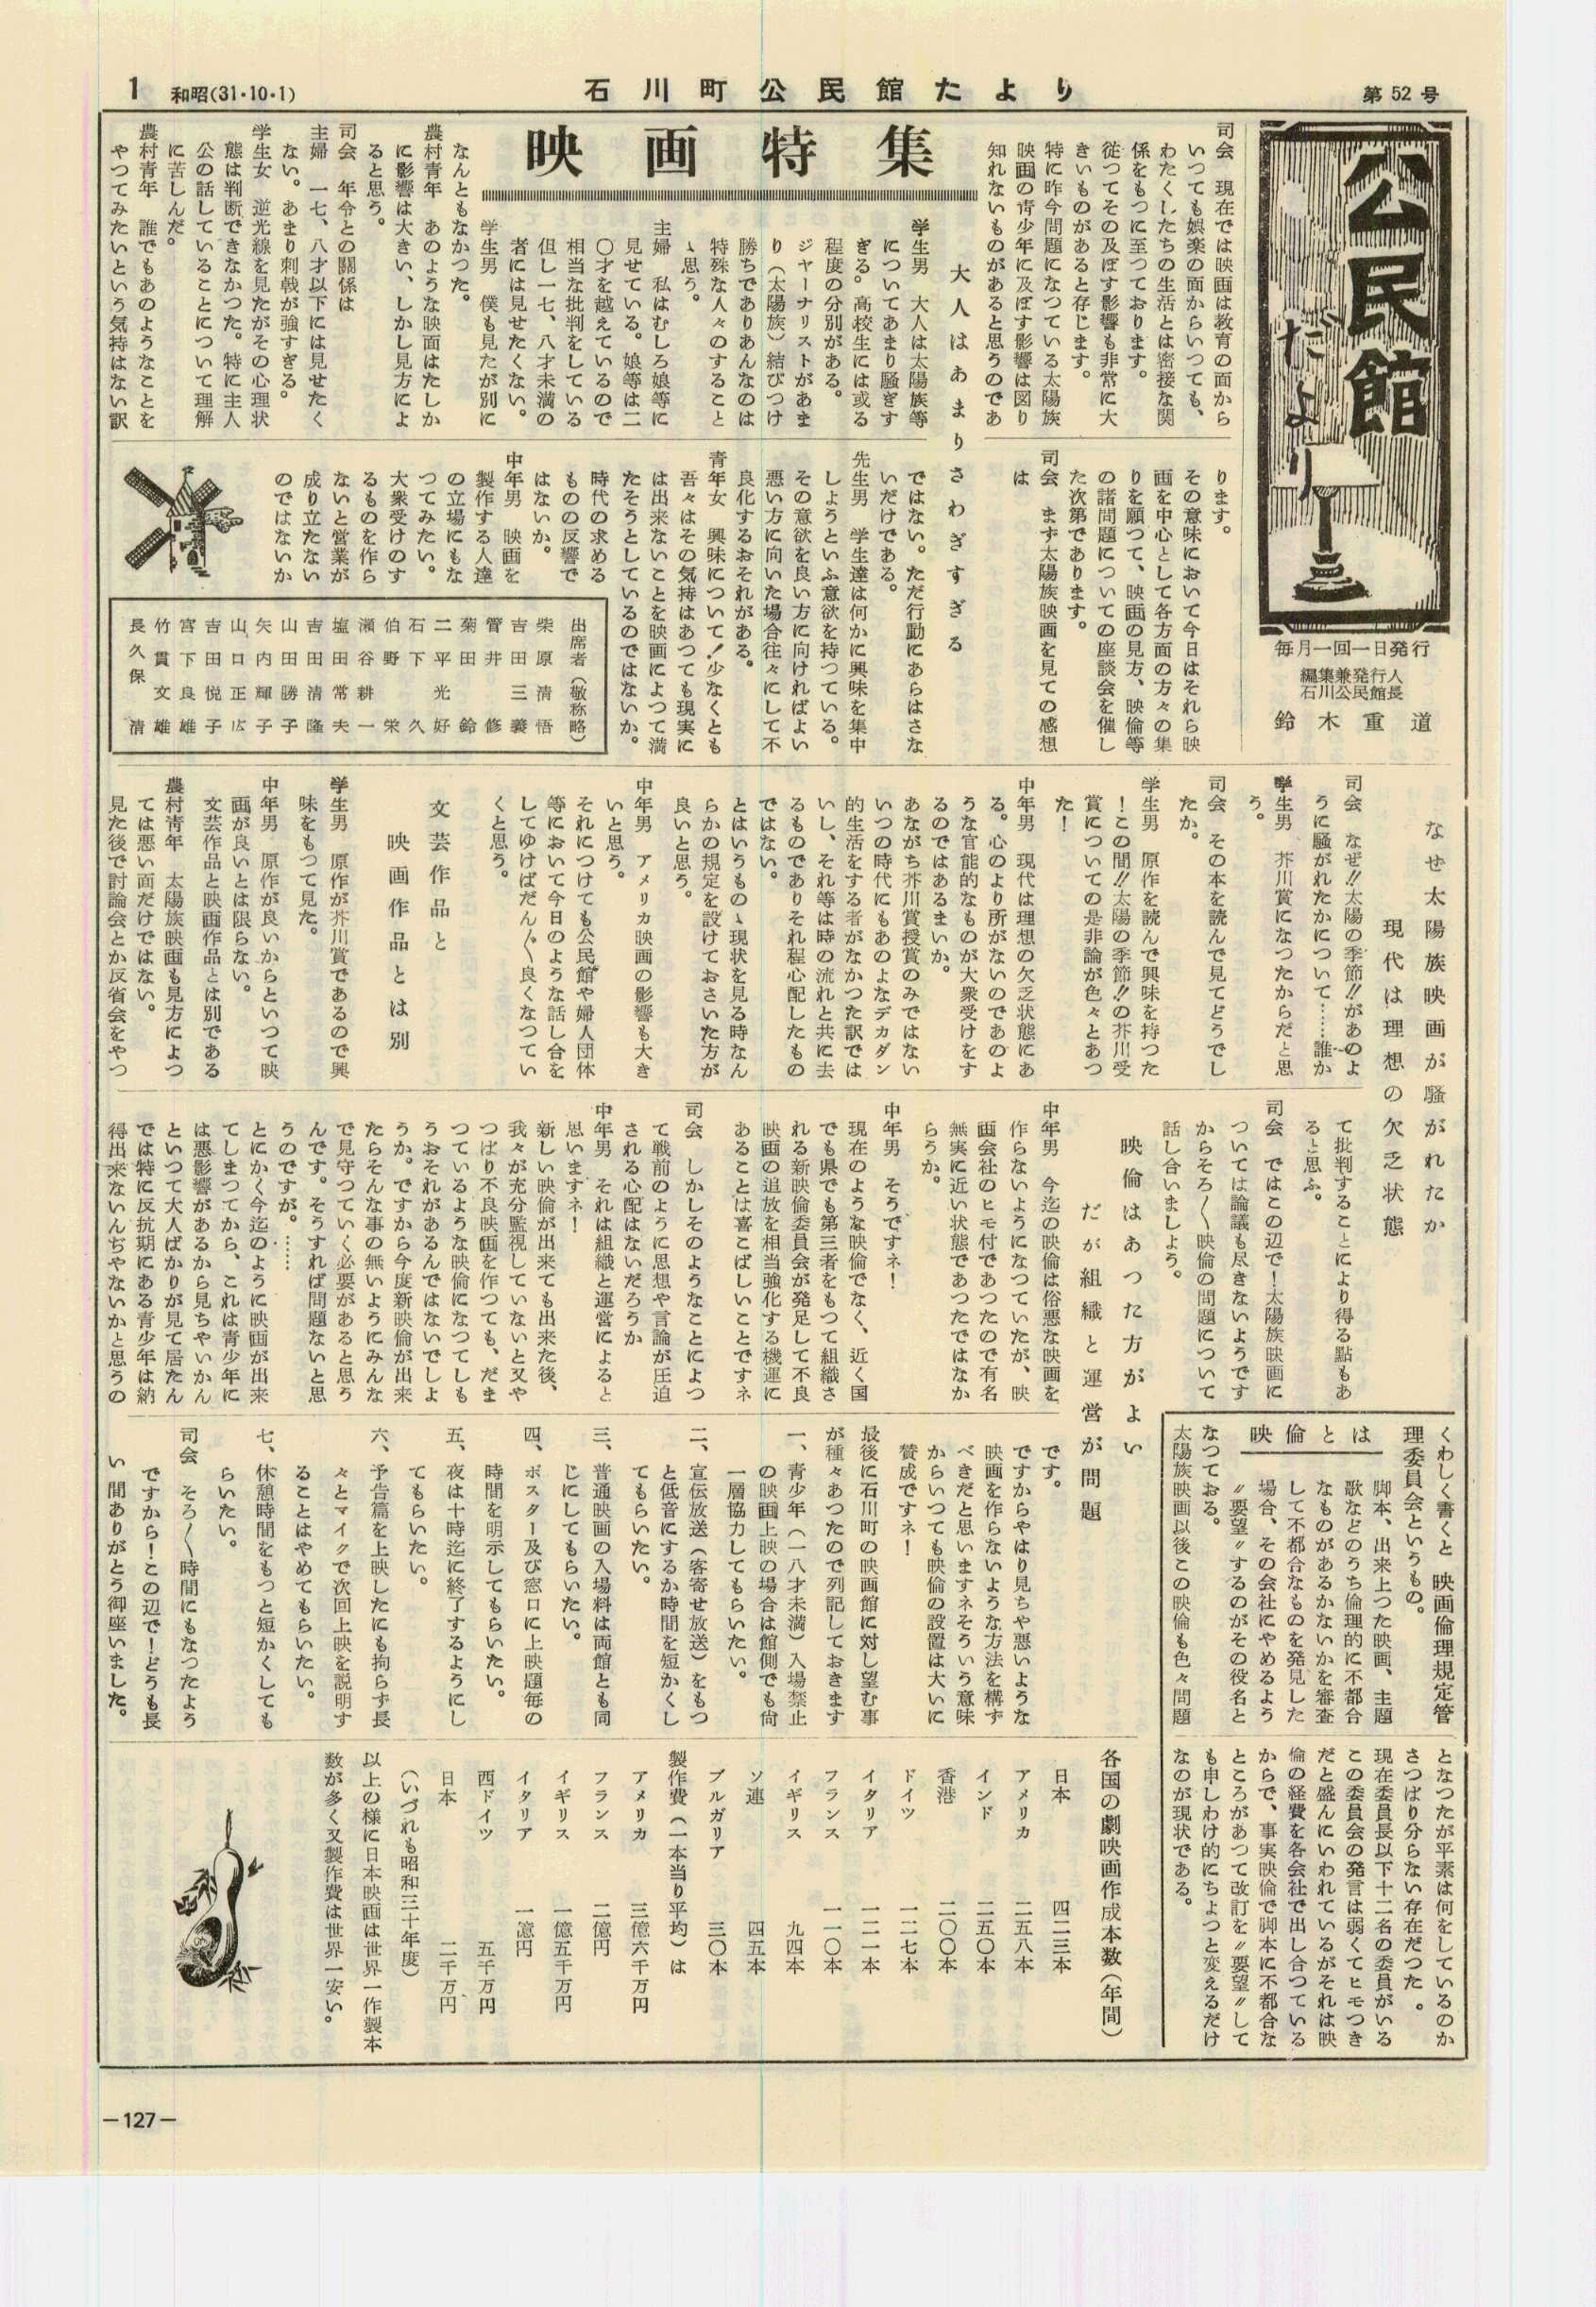 1
和昭(31·10·1)
石川町公民館たより
第52号
公民館だより
毎月一回一日発行
編集兼発行人
石川公民館長
鈴木重道
映画特集
司会　現在では映画は教育の面から
いつても娯楽の面からいつても、
わたくしたちの生活とは密接な関
係をもつに至つております。
従つてその及ぼす影響も非常に大
きいものがあると存じます。
特に昨今問題になつている太陽族
映画の青少年に及ぼす影響は図り
知れないものがあると思うのであ
ります。
その意味において今日はそれら映
画を中心として各方面の方々の集
りを願つて、映画の見方、映倫等
の諸問題についての座談会を催し
た次第であります。
司会　まず太陽族映画を見ての感想
は
大人はあまりさわぎすぎる
学生男　大人は太陽族等
についてあまり騒ぎす
ぎる。高校生には或る
程度の分別がある。
ジャーナリストがあま
り（太陽族）結びつけ
勝ちでありあんなのは
特殊な人々のすること
ゝ思う。
主婦　私はむしろ娘等に
見せている。娘等は二
〇才を越えているので
相当な批判をしている
但し一七、八才未満の
者には見せたくない。
学生男　僕も見たが別に
なんともなかつた。
農村青年　あのような映画はたしか
に影響は大きい、しかし見方によ
ると思う。
司会　年令との關係は
主婦　一七、八才以下には見せたく
ない。あまり刺戟が強すぎる。
学生女　逆光線を見たがその心理状
態は判断できなかつた。特に主人
公の話していることについて理解
に苦しんだ。
農村青年　誰でもあのようなことを
やつてみたいという気持はない訳
ではない。ただ行動にあらはさな
いだけである。
先生男　学生達は何かに興味を集中
しようといふ意欲を持つている。
その意欲を良い方に向ければよい
悪い方に向いた場合往々にして不
良化するおそれがある。
青年女　興味について！少なくとも
吾々はその気持はあつても現実に
は出来ないことを映画によつて満
たそうとしているのではないか。
時代の求める
ものの反響で
はないか。
中年男　映画を
製作する人達
の立場にもな
つてみたい。
大衆受けのす
るものを作ら
ないと営業が
成り立たない
のではないか
出席者（敬称略）
柴原清悟
吉田三義
管井修
菊田鈴
二平光好
石下久
伯野栄
瀬谷耕一
塩田常夫
吉田清隆
山田勝子
矢内輝子
山口正広
吉田悦子
宮下良雄
竹貫文雄
長久保清
なぜ太陽族映画が騒がれたか
現代は理想の欠乏状態
司会　なぜ‼太陽の季節‼があのよ
うに騒がれたかについて……誰か
学生男　芥川賞になつたからだと思
う。
司会　その本を読んで見てどうでし
たか。
学生男　原作を読んで興味を持つた
！この間‼太陽の季節‼の芥川受
賞についての是非論が色々とあつ
た！
中年男　現代は理想の欠乏状態にあ
る。心のより所がないのであのよ
うな官能的なものが大衆受けをす
るのではあるまいか。
あながち芥川賞授賞のみではない
いつの時代にもあのよなデカダン
的生活をする者がなかつた訳では
いし、それ等は時の流れと共に去
るものでありそれ程心配したもの
ではない。
とはいうものゝ現状を見る時なん
らかの規定を設けておさいた方が
良いと思う。
中年男　アメリカ映画の影響も大き
いと思う。
それにつけても公民館や婦人団体
等において今日のような話し合を
してゆけばだん〱良くなつてい
くと思う。
文芸作品と
映画作品とは別
学生男　原作が芥川賞であるので興
味をもつて見た。
中年男　原作が良いからといつて映
画が良いとは限らない。
文芸作品と映画作品とは別である
農村青年　太陽族映画も見方によつ
ては悪い面だけではない。
見た後で討論会とか反省会をやつ
て批判することにより得る點もあ
ると思ふ。
司会　ではこの辺で！太陽族映画に
ついては論議も尽きないようです
からそろ〱映倫の問題について
話し合いましよう。
映倫はあつた方がよい
だが組織と運営が問題
中年男　今迄の映倫は俗悪な映画を
作らないようになつていたが、映
画会社のヒモ付であつたので有名
無実に近い状態であつたではなか
らうか。
中年男　そうですネ！
現在のような映倫でなく、近く国
でも県でも第三者をもつて組織さ
れる新映倫委員会が発足して不良
映画の追放を相当強化する機運に
あることは喜こばしいことですネ
司会　しかしそのようなことによつ
て戦前のように思想や言論が圧迫
される心配はないだろうか
中年男　それは組織と運営によると
思いますネ！
新しい映倫が出来ても出来た後、
我々が充分監視していないと又や
つぱり不良映画を作つても、だま
つているような映倫になつてしも
うおそれがあるんではないでしよ
うか。ですから今度新映倫が出来
たらそんな事の無いようにみんな
で見守つていく必要があると思う
んです。そうすれば問題ないと思
うのですが。……
とにかく今迄のように映画が出来
てしまつてから、これは青少年に
は悪影響があるから見ちやいかん
といつて大人ばかりが見て居たん
では特に反抗期にある青少年は納
得出来ないんぢやないかと思うの
です。
ですからやはり見ちや悪いような
映画を作らないような方法を構ず
べきだと思いますネそういう意味
からいつても映倫の設置は大いに
賛成ですネ！
最後に石川町の映画館に対し望む事
が種々あつたので列記しておきます
一、青少年（一八才未満）入場禁止
の映画上映の場合は館側でも尚
一層協力してもらいたい。
二、宣伝放送（客寄せ放送）をもつ
と低音にするか時間を短かくし
てもらいたい。
三、普通映画の入場料は両館とも同
じにしてもらいたい。
四、ポスター及び窓口に上映題毎の
時間を明示してもらいたい。
五、夜は十時迄に終了するようにし
てもらいたい。
六、予告篇を上映したにも拘らず長
々とマイクで次回上映を説明す
ることはやめてもらいたい。
七、休憩時間をもつと短かくしても
らいたい。
司会　そろ〱時間にもなつたよう
ですから！この辺で！どうも長
い間ありがとう御座いました。
映倫とは
くわしく書くと　映画倫理規定管
理委員会というもの。
脚本、出来上つた映画、主題
歌などのうち倫理的に不都合
なものがあるかないかを審査
して不都合なものを発見した
場合、その会社にやめるよう
〃要望〃するのがその役名と
なつておる。
太陽族映画以後この映倫も色々問題
となつたが平素は何をしているのか
さつぱり分らない存在だつた。
現在委員長以下十二名の委員がいる
この委員会の発言は弱くてヒモつき
だと盛んにいわれているがそれは映
倫の経費を各会社で出し合つている
からで、事実映倫で脚本に不都合な
ところがあつて改訂を〃要望〃して
も申しわけ的にちょつと変えるだけ
なのが現状である。
各国の劇映画作成本数（年間）
日本　四二三本
アメリカ　二五八本
インド　二五〇本
香港　二〇〇本
ドイツ　一二七本
イタリア　一二一本
フランス　一一〇本
イギリス　九四本
ソ連　四五本
ブルガリア　三〇本
製作費（一本当り平均）は
アメリカ　三億六千万円
フランス　二億円
イギリス　一億五千万円
イタリア　一億円
西ドイツ　五千万円
日本　二千万円
（いづれも昭和三十年度）
以上の様に日本映画は世界一作製本
数が多く又製作費は世界一安い。
—127—